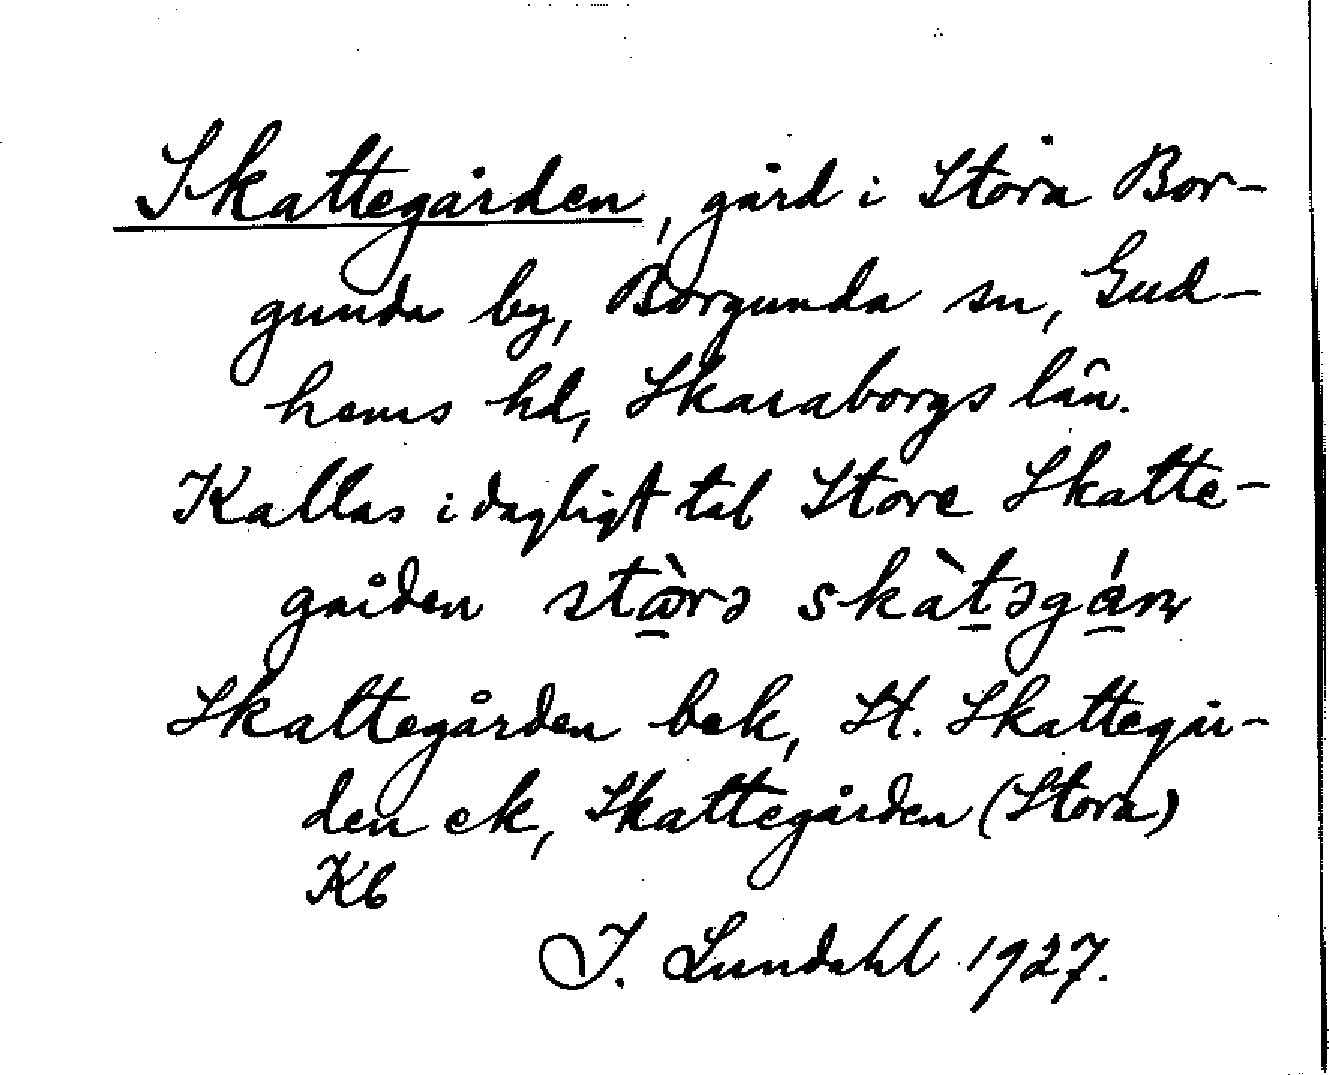 Skattegården, gård i Stora Bor-
gunda by, Borgunda sn, Gud-
hems hd, Skaraborgs län.
Kallas i dagligt tal Store Skatte-
gården
Skattegården bek, St. Skattegår-
den ek, Skattegården (Stora)
Kb
I. Lundahl 1927.